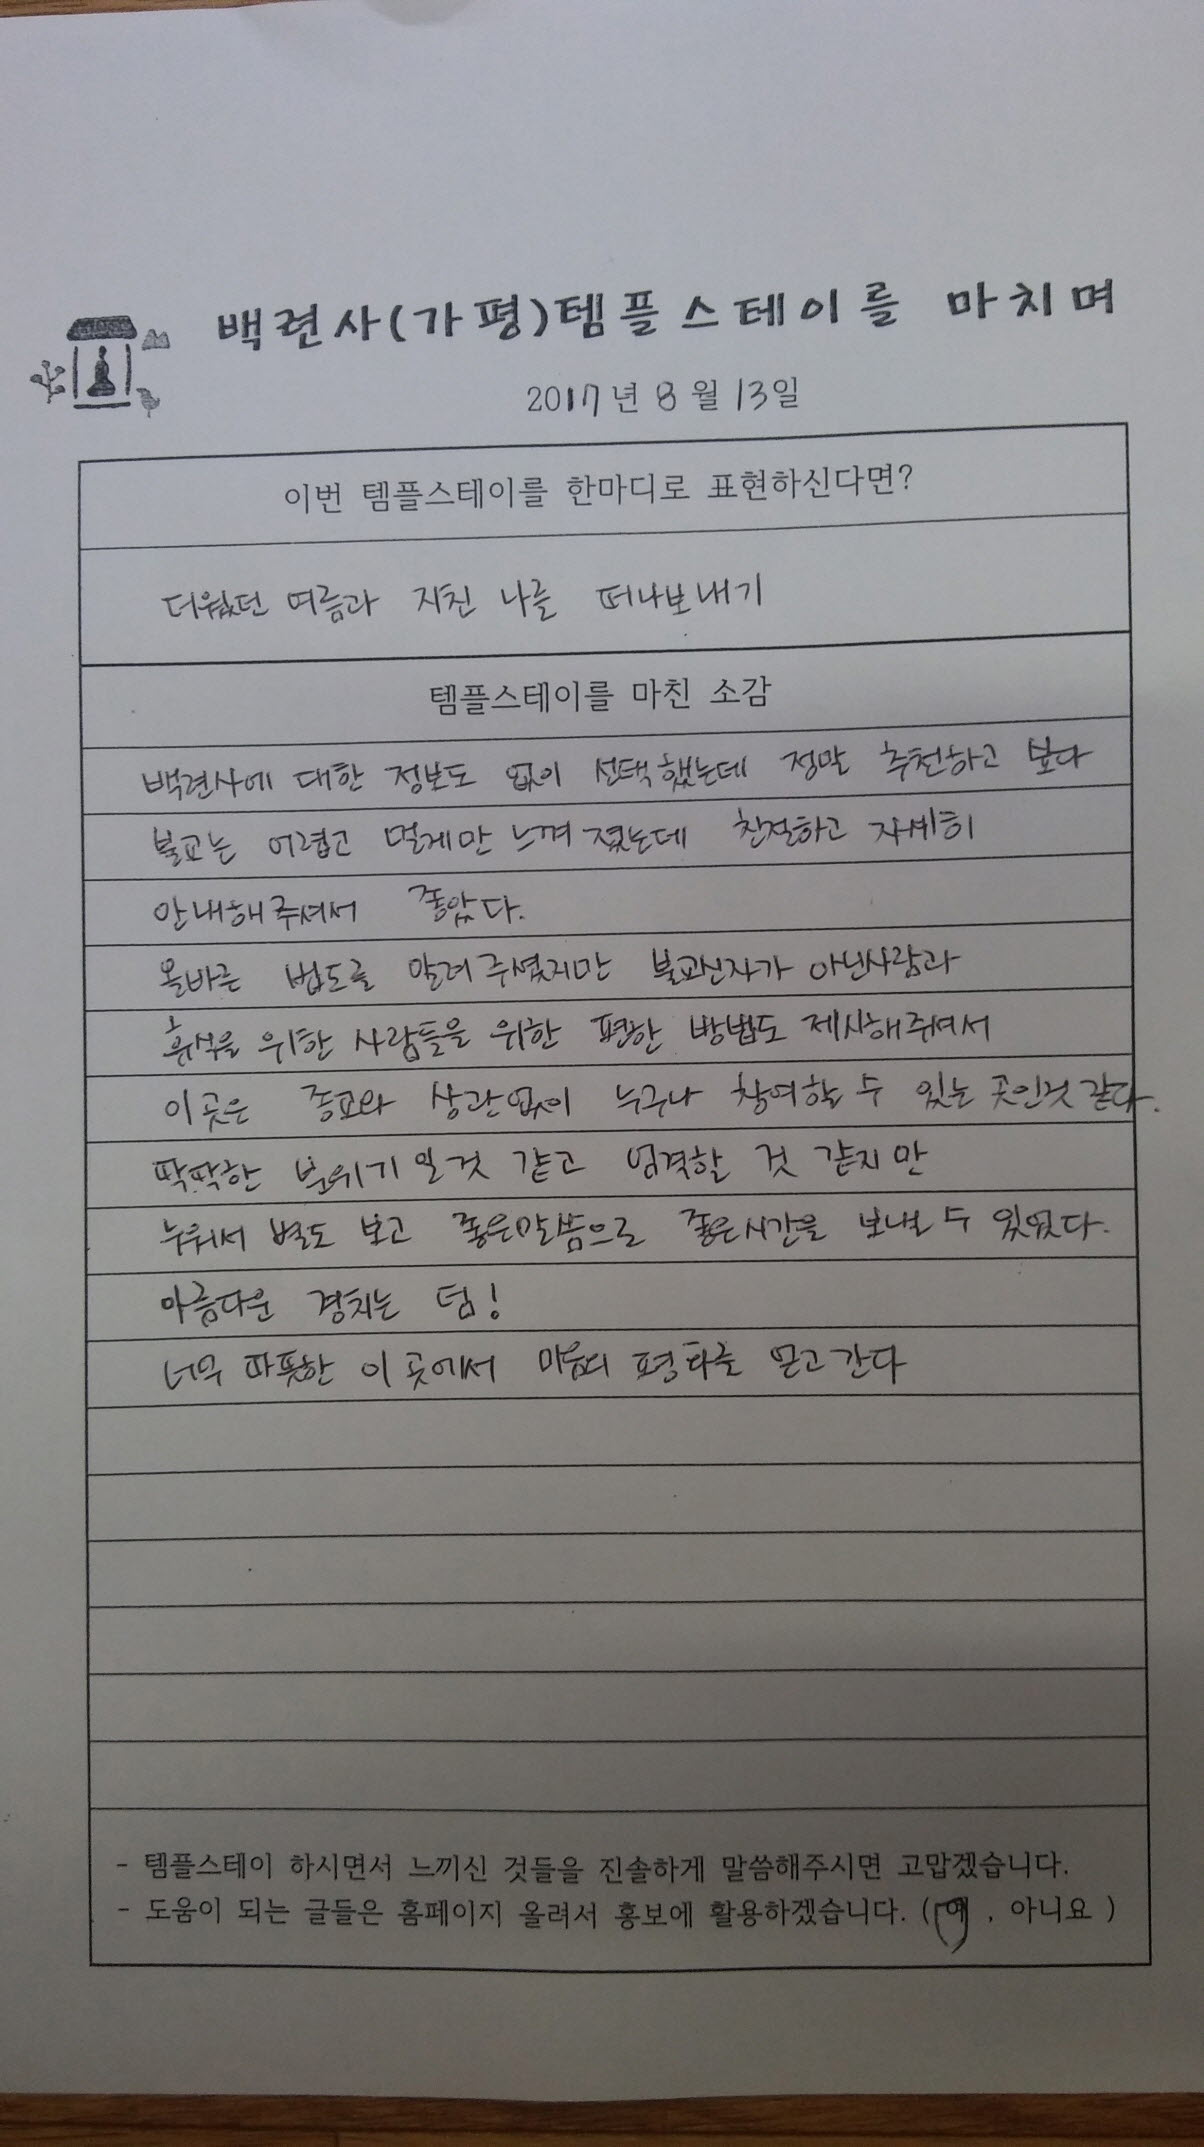 백련사(가평)템플스테이를 마치며
2017년 8월 13일
이번 템플스테이를 한마디로 표현하신다면?
더웠던 여름과 지친 나를 떠나보내기
템플스테이를 마친 소감
백련사에 대한 정보도 없이 선택했는데 정말 추천하고 싶다
불교는 어렵고 멀게만 느껴졌는데 친절하고 자세히
안내해주셔서 좋았다.
올바른 법도를 알려주셨지만 불교신자가 아닌사람과
휴식을 위한 사람들을 위한 편한 방법도 제시해주셔서
이곳은 종교와 상관없이 누구나 참여할 수 있는 곳인것 같다.
딱딱한 분위기 일것 같고 엄격할 것 같지만
누워서 별도 보고 좋은말씀으로 좋은시간을 보내낼 수 있었다.
아름다운 경치는 덤!
너무 따뜻한 이 곳에서 마음의 평화를 얻고간다
- 템플스테이 하시면서 느끼신 것들을 진솔하게 말씀해주시면 고맙겠습니다.
- 도움이 되는 글들은 홈페이지 올려서 홍보에 활용하겠습니다. (예 , 아니요 )